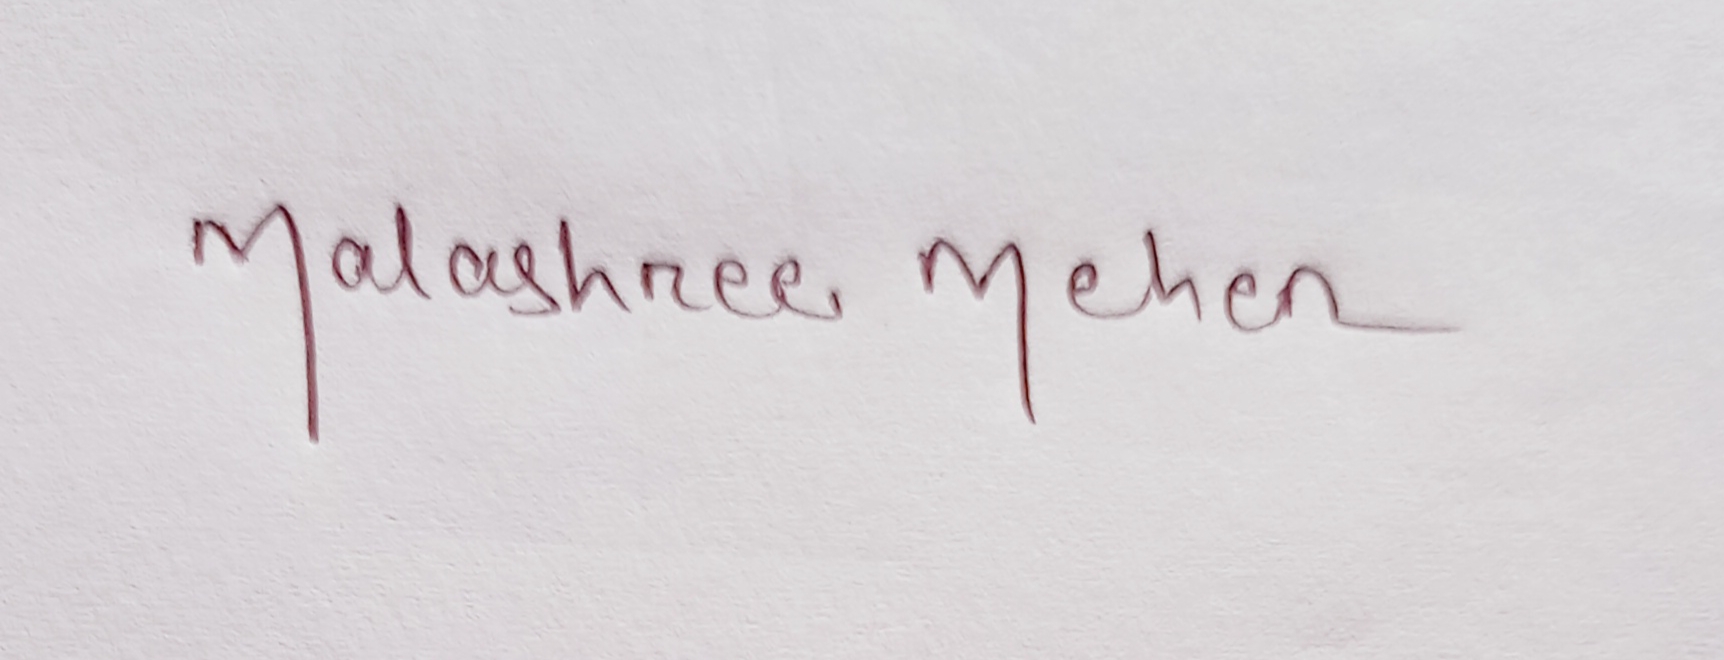 Malashree Meher